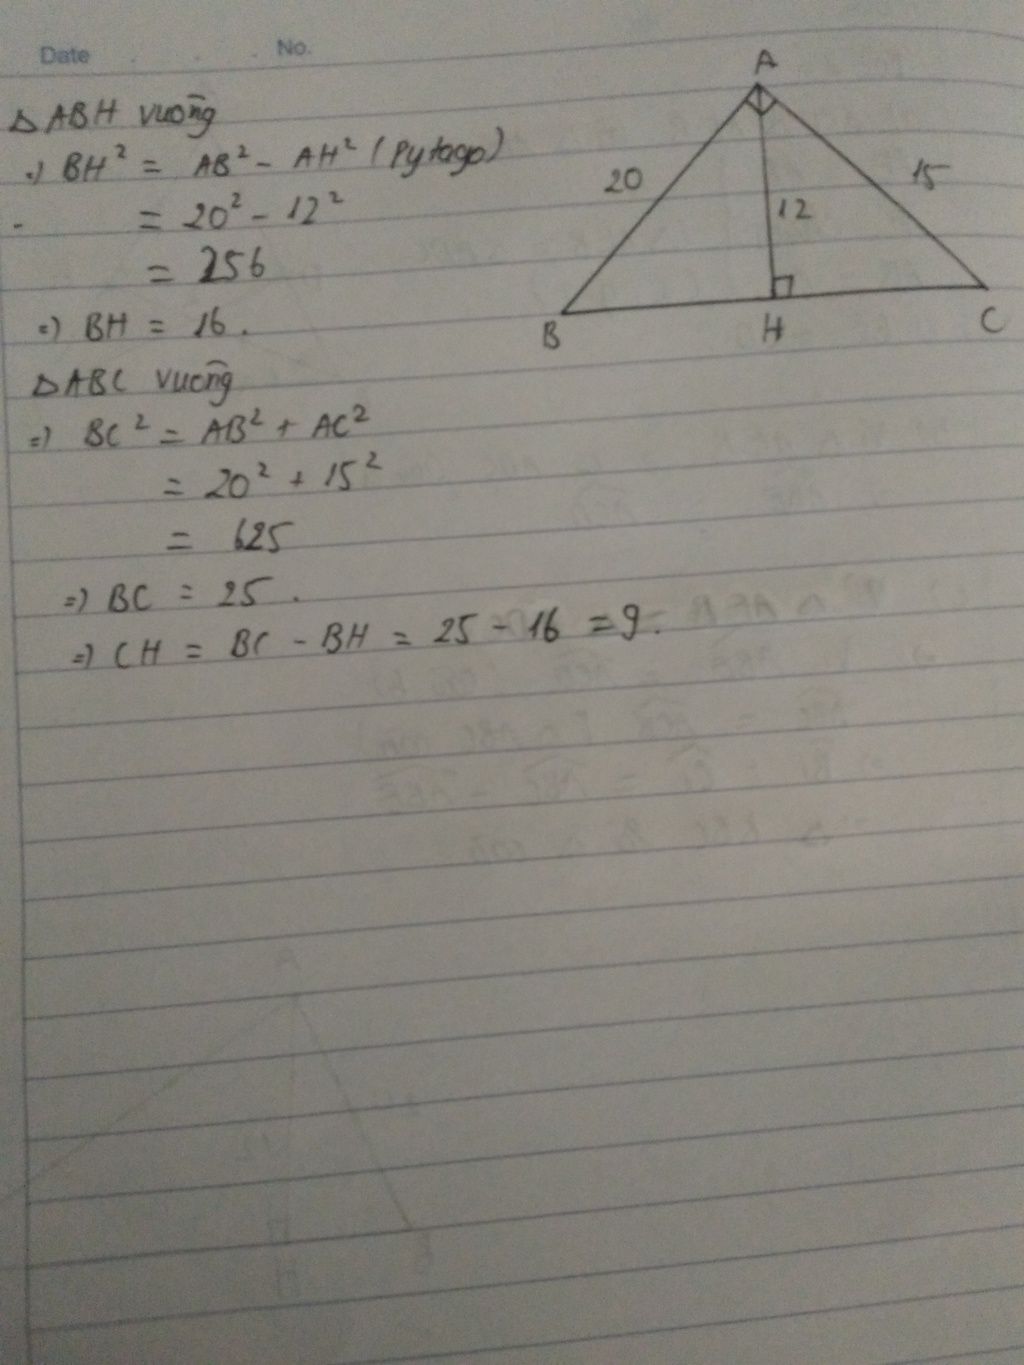 Date . . . No.
△ABH vuông
⇒ BH² = AB² - AH² (Pytago)
= 20² - 12²
= 256
⇒ BH = 16.
△ABC vuông
⇒ BC² = AB² + AC²
= 20² + 15²
= 625
⇒ BC = 25.
⇒ CH = BC - BH = 25 - 16 = 9.
A
20
15
12
B
H
C